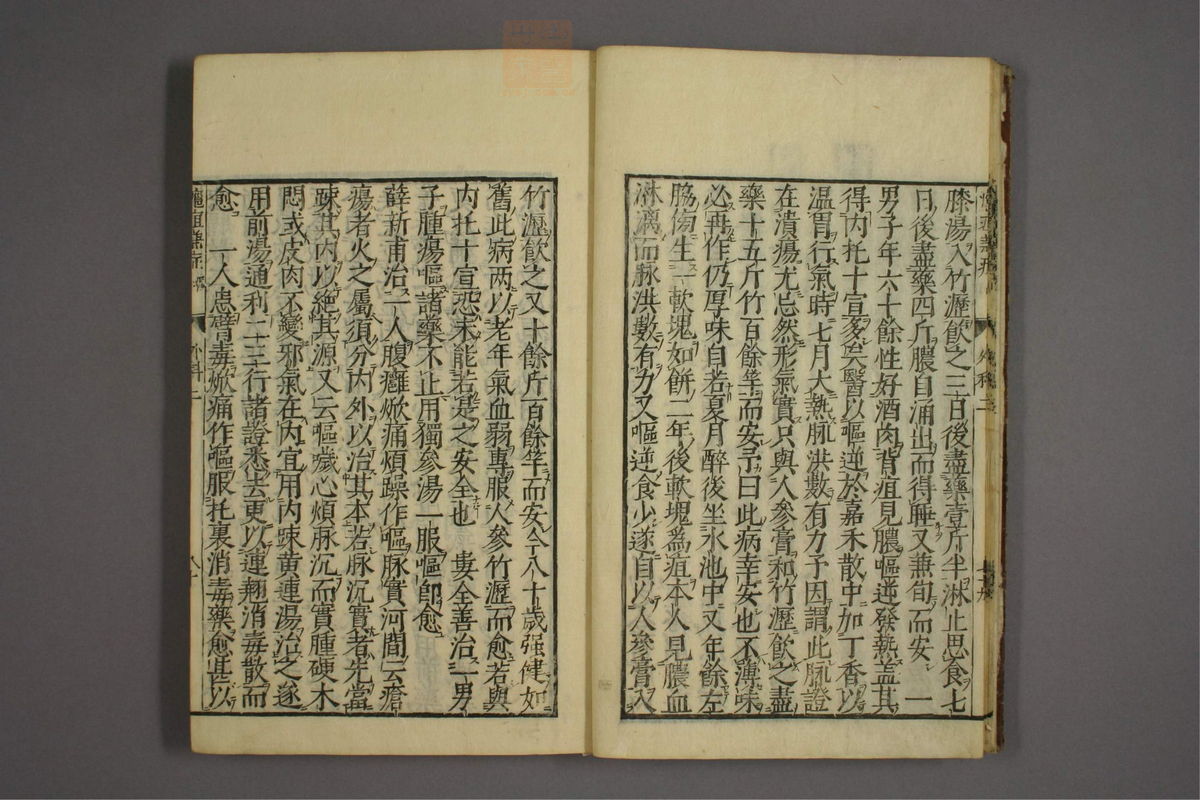 膝湯入竹瀝飲之三日後盡藥壹斤半淋止思食七
日後盡藥四斤膿自涌出而得睡又兼旬而安 一
男子年六十餘性好酒肉背疽見膿嘔逆發熱盖其
得内托十宣多矣醫以嘔逆於嘉禾散中加丁香以
温胃行氣時七月大熱脉洪數有力予因謂此脉證
在潰瘍尤忌然形氣實只與人參膏和竹瀝飲之盡
藥十五斤竹百餘竿而安予曰此病幸安也不薄味
必再作仍厚味自若夏月醉後坐水池中又年餘左
脇傍生一軟塊如餅二年後軟塊為疽本人見膿血
淋漓而脉洪數有力又嘔逆食少遂自以人參膏入
竹瀝飲之又十餘斤百餘竿而安今八十歲强健如
舊此病两以老年氣血弱專服人參竹瀝而愈若與
内托十宣恐未能若是之安全也 婁全善治一男
子腫瘍嘔諸藥不止用獨參湯一服嘔即愈
薛新甫治一人腹癰焮痛煩躁作嘔脉實河間云瘡
瘍者火之屬須分内外以治其本若脉沉實者先當
踈其内以絶其源又云嘔噦心煩脉沉而實腫硬木
悶或皮肉不變邪氣在内宜用内踈黄連湯治之遂
用前湯通利二三行諸證悉去更以連翹消毒散而
愈 一人患臂毒焮痛作嘔服托裏消毒藥愈甚以